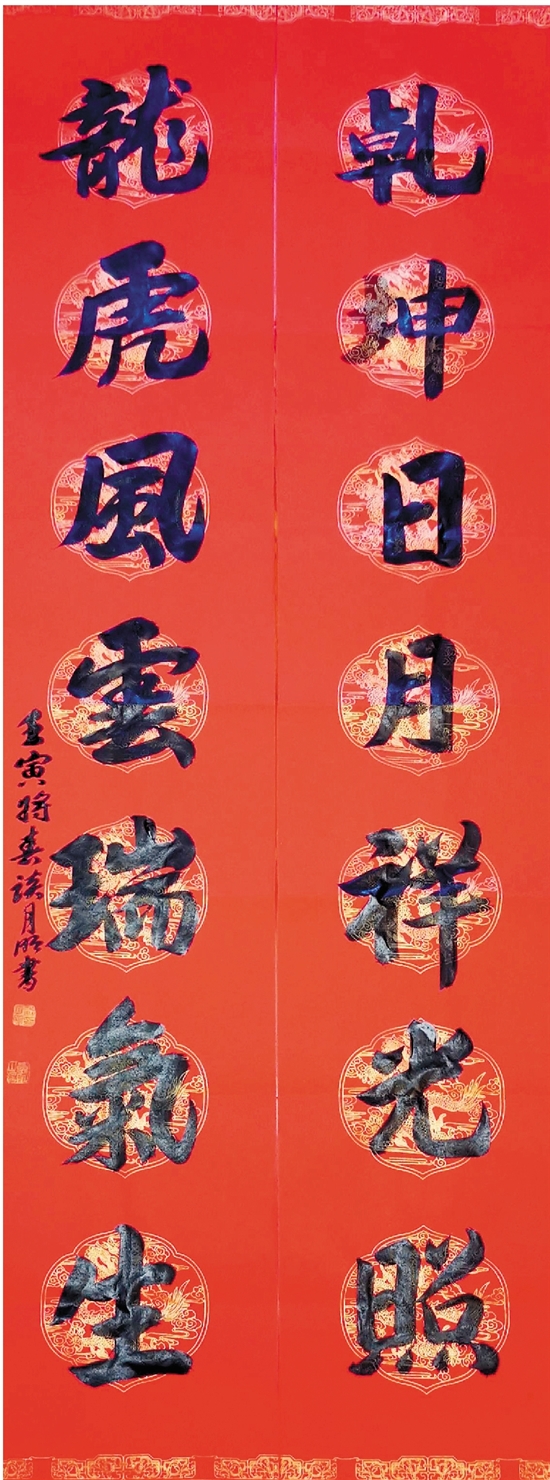 乾坤日月祥光照
龍虎風雲瑞氣生
壬寅将春談月明書